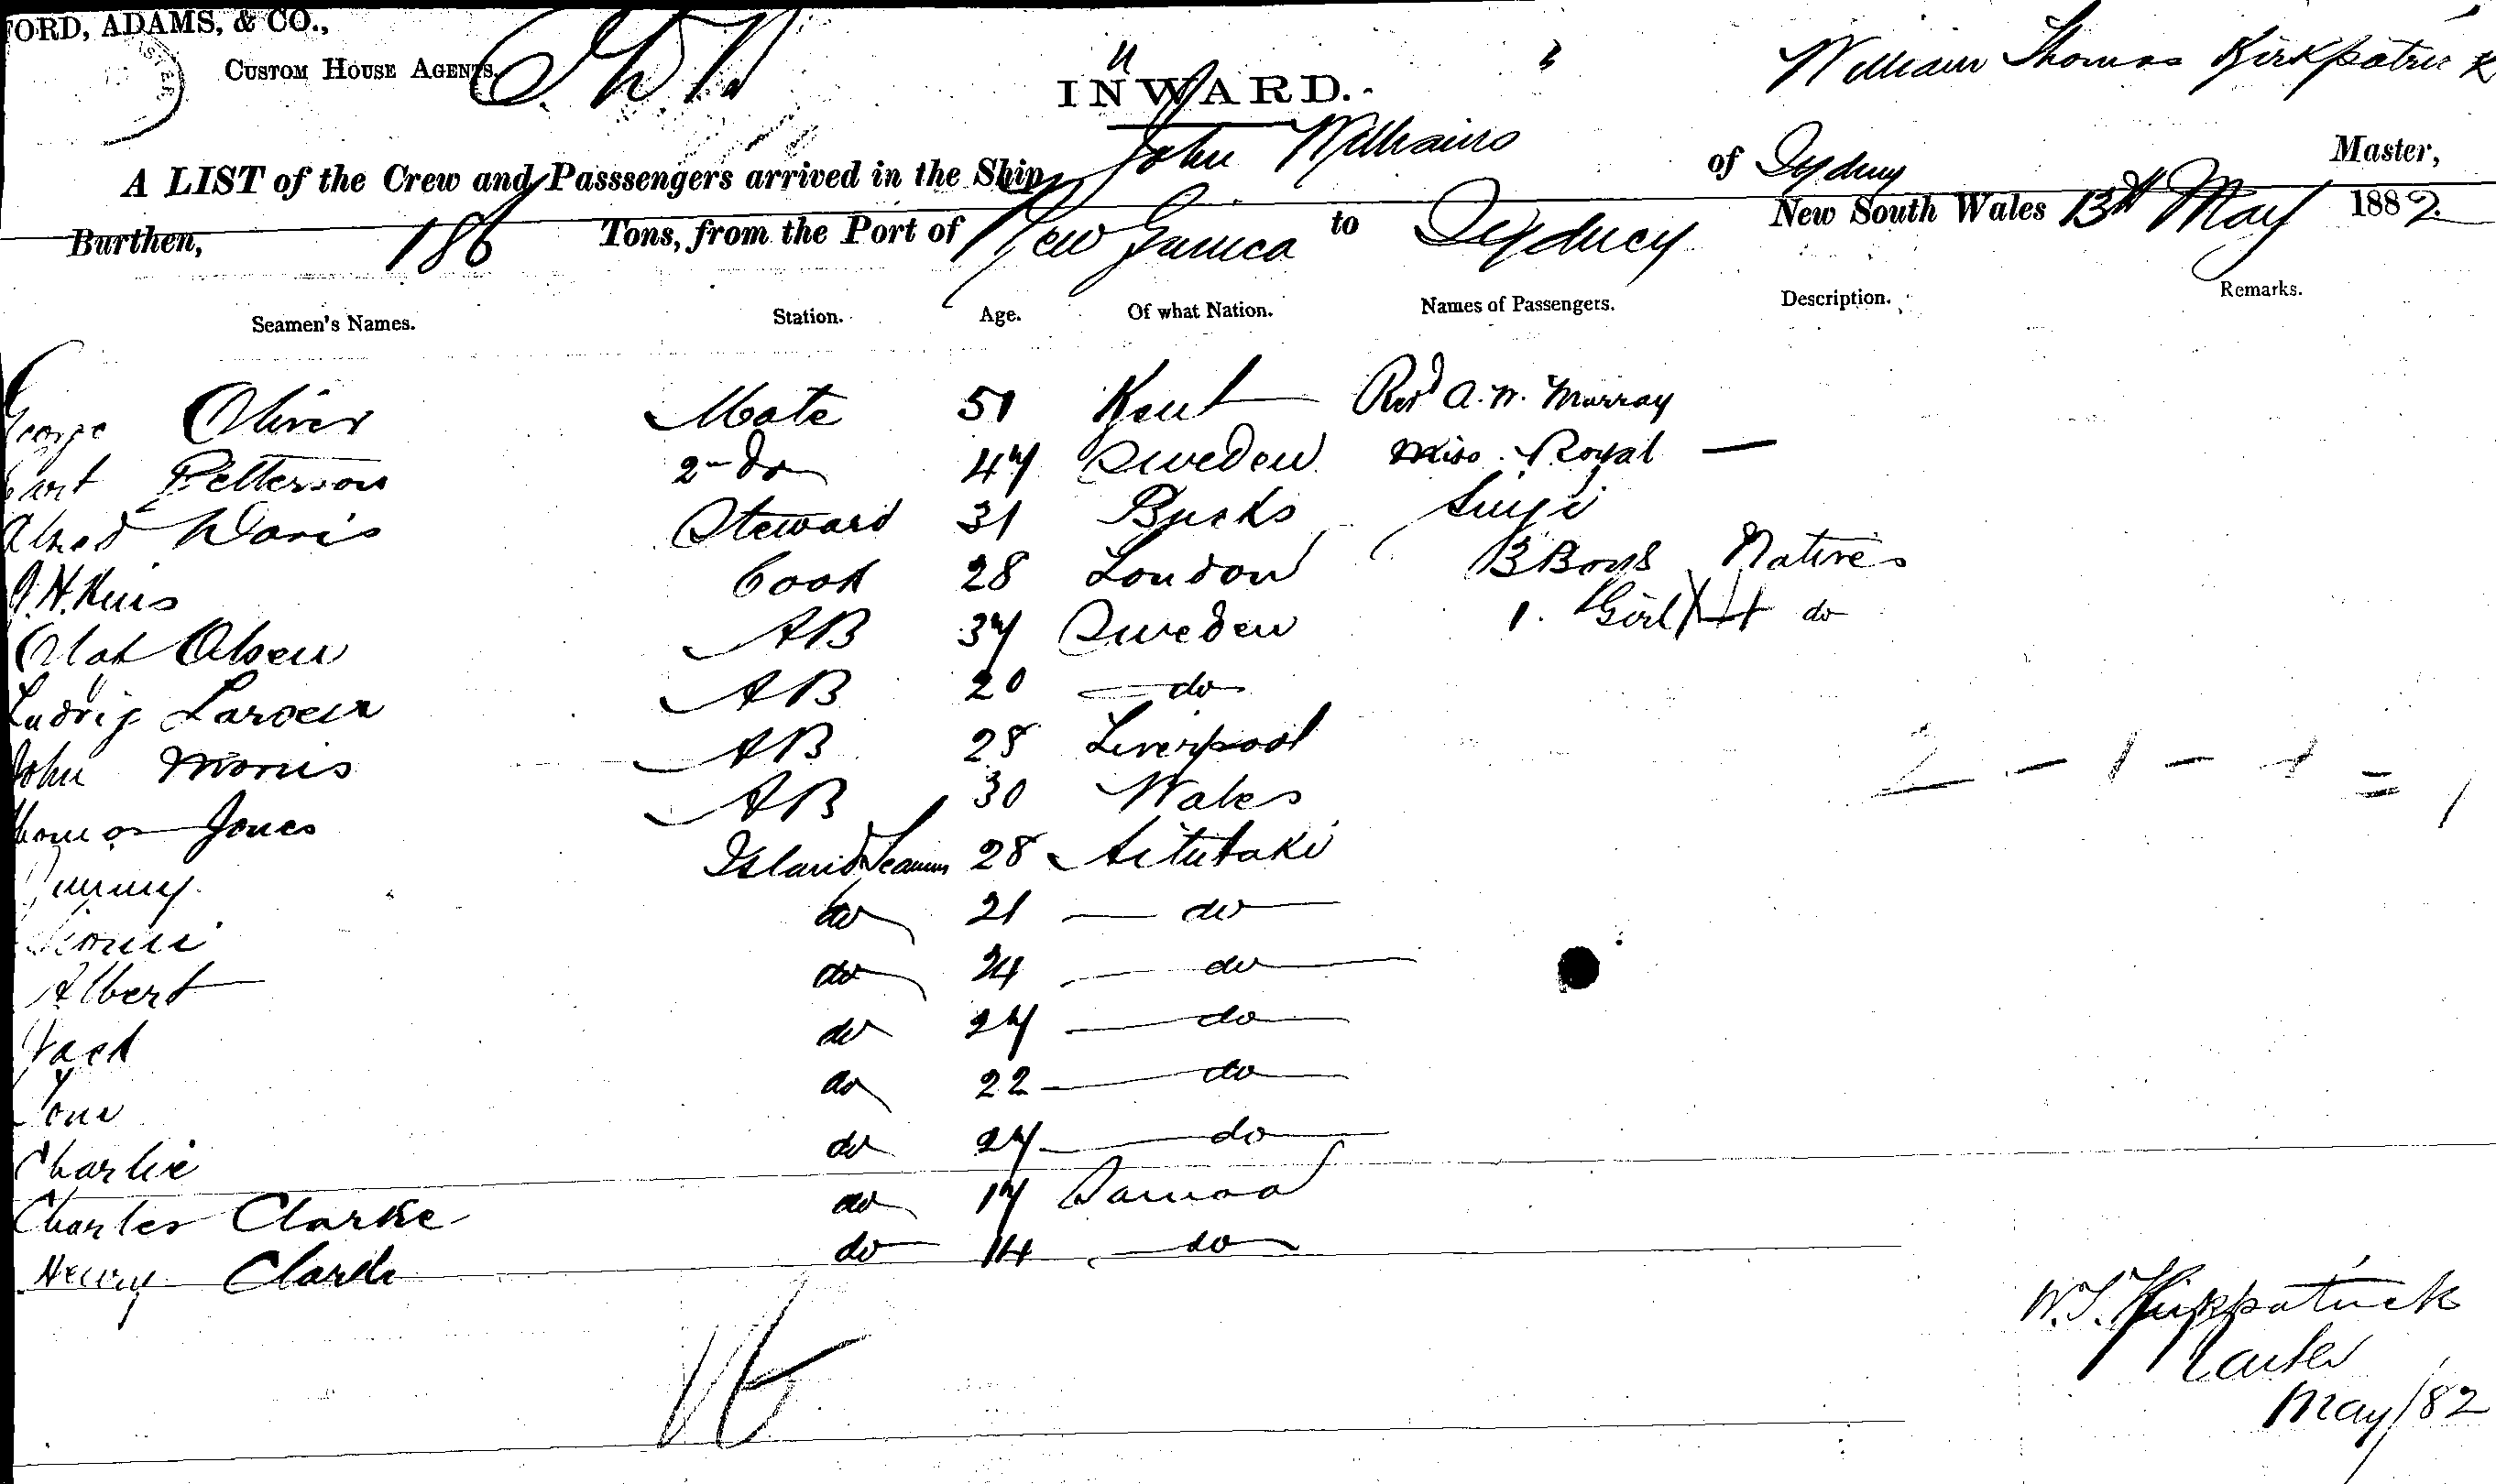 FORD, ADAMS, & CO.,
CUSTOM HOUSE AGENTS.
INWARD.
William Thomas Kirkpatrick
A LIST of the Crew and Passsengers arrived in the Ship John Williams of Sydney Master,
Burthen, 186 Tons, from the Port of New Guinea to Sydney New South Wales 13th May 1882
Seamen's Names. Station. Age. Of what Nation. Names of Passengers. Description. Remarks.
George Oliver Mate 51 Kent Revd A. W. Murray
Petterson 2 do 47 Sweden Miss Royal —
Alfred Davis Steward 31 Bucks
Cook 28 London 3 Boys Natives
Olaf Olsen AB 37 Sweden 1. Girl do
Ludvig Larsen AB 20 do
John Morris AB 28 Liverpool
Thomas Jones AB 30 Wales
Jimmy Island Seaman 28 Aitutaki
do 21 do
Albert do 24 do
Jack do 27 do
Tom do 22 do
Charlie do 27 do
Charles Clarke do 17 Samoa
Henry Clark do 14 do
W. T. Kirkpatrick
May/82